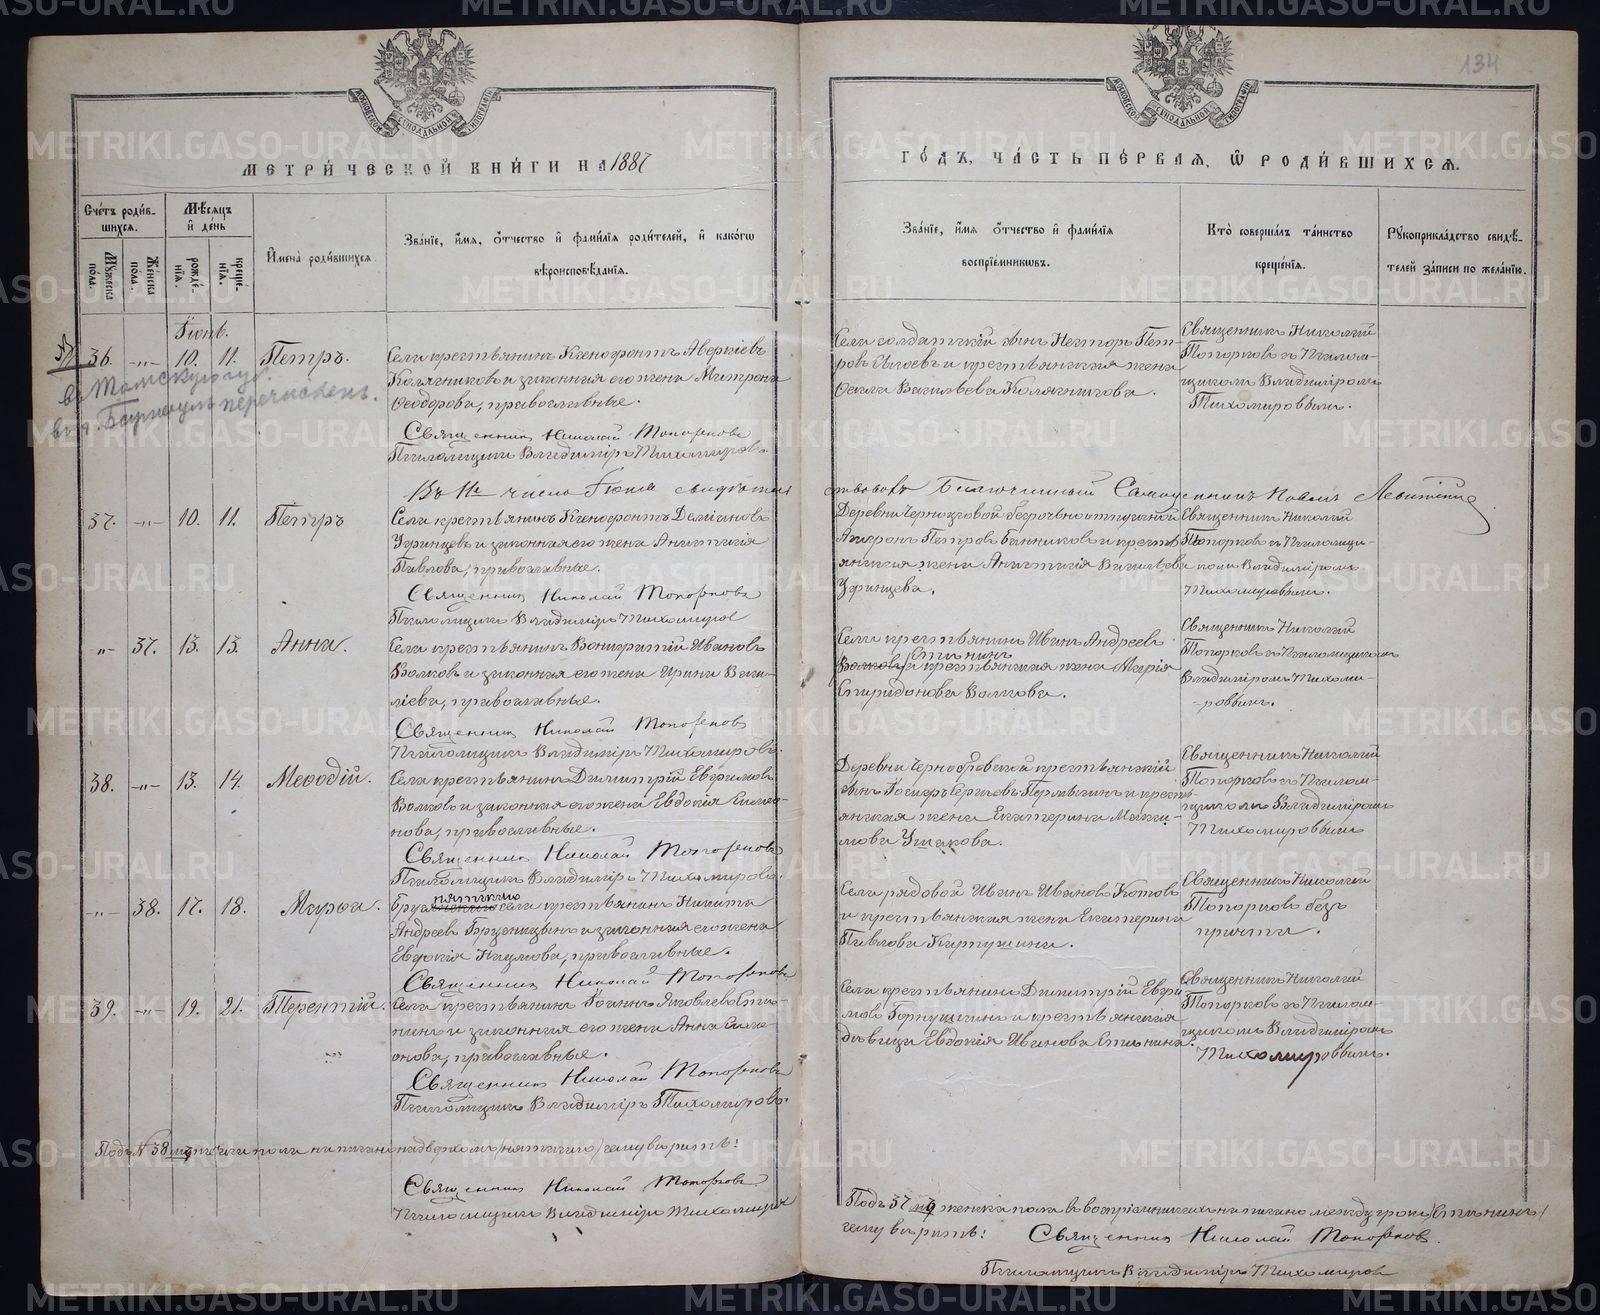 134
МОСКОВСКОЙ СИНОДАЛЬНОЙ ТИПОГРАФІИ
МОСКОВСКОЙ СИНОДАЛЬНОЙ ТИПОГРАФІИ
МЕТРИЧЕСКОЙ КНИГИ НА 1887
ГОДЪ, ЧАСТЬ ПЕРВАЯ, Ѽ РОДИВШИХСЯ.
Счетъ родив-
шихся.
Мужеска пола.
Женска пола.
Мѣсяцъ
и день
рожде-
нія.
креще-
нія.
Имена родившихся.
Званіе, имя, отчество и фамилія родителей, и какогѡ
вѣроисповѣданія.
Званіе, имя отчество и фамилія
воспріемниковъ.
Кто совершалъ таинство
крещенія.
Рукоприкладство свидѣ-
телей записи по желанію.
Іюнь.
36. -„- 10. 11. Петръ.
въ Томскую губ.
въ г. Барнаулъ перечисленъ.
Села крестьянинъ Ксенофонтъ Аверкіевъ
Колясниковъ и законная его жена Матрона
Ѳеодорова, православные.
Священникъ Николай Топорковъ
Псаломщикъ Владиміръ Тихомировъ.
Села солдатскій сынъ Несторъ Пет-
ровъ и крестьянская жена
Васильева Колясникова.
Священникъ Николай
Топорковъ съ Псалом-
щикомъ Владиміромъ
Тихомировымъ.
Въ 11е число Іюня свидѣтель-
ствовалъ Благочинный Священникъ Павелъ
37. -„- 10. 11. Петръ
Села крестьянинъ Ксенофонтъ Деміановъ
Уфинцевъ и законная его жена Анастасія
Павлова, православные.
Священникъ Николай Топорковъ
Псаломщикъ Владиміръ Тихомировъ
Деревни безсрочно отпускной
Петровъ Банниковъ и кресть-
янская жена Анастасія Васильева
Уфинцева.
Священникъ Николай
Топорковъ съ Псаломщи-
комъ Владиміромъ
Тихомировымъ.
-„- 37. 13. 13. Анна.
Села крестьянинъ Ивановъ
Волковъ и законная его жена Ирина Васи-
ліева, православные.
Священникъ Николай Топорковъ
Псаломщикъ Владиміръ Тихомировъ.
Села крестьянинъ Иванъ Андреевъ
Волковъ /Стынинъ и крестьянская жена Марія
Спиридонова Волкова.
Священникъ Николай
Топорковъ съ Псаломщикомъ
Владиміромъ Тихоми-
ровымъ.
38. -„- 13. 14. Меѳодій.
Села крестьянинъ Димитрій Евфимовъ
Волковъ и законная его жена Евдокія Симео-
нова, православные.
Священникъ Николай Топорковъ
Псаломщикъ Владиміръ Тихомировъ.
Деревни крестьянскій
сынъ Сергіевъ и кресть-
янская жена Екатерина Макси-
мова Ушакова.
Священникъ Николай
Топорковъ съ Псалом-
щикомъ Владиміромъ
Тихомировымъ
-„- 38. 17. 18. Марѳа.
села крестьянинъ Никита
Андреевъ и законная его жена
Евдокія Наумова, православные.
Священникъ Николай Топорковъ
Села рядовой Иванъ Ивановъ Котовъ
и крестьянская жена Екатерина
Павлова Картушина.
Священникъ Николай
Топорковъ безъ
причта.
39. -„- 19. 21. Терентій.
Села крестьянинъ Іоаннъ Яковлевъ Сты-
нинъ и законная его жена Анна Симе-
онова, православные.
Священникъ Николай Топорковъ
Псаломщикъ Владиміръ Тихомировъ.
Села крестьянинъ Димитрій Евфи-
мовъ и крестьянская
дѣвица Евдокія Иванова Стынина.
Священникъ Николай
Топорковъ съ Псалом-
щикомъ Владиміромъ
Тихомировымъ.
Подъ № 38 пола написано надъ верхомъ чему вѣрить!
Священникъ Николай Топорковъ
Псаломщикъ Владиміръ Тихомировъ
Подъ 37 женска пола въ воспріемникахъ написано между строкъ /Стынинъ/
чему вѣрить! Священникъ Николай Топорковъ.
Псаломщикъ Владиміръ Тихомировъ
METRIKI.GASO-URAL.RU